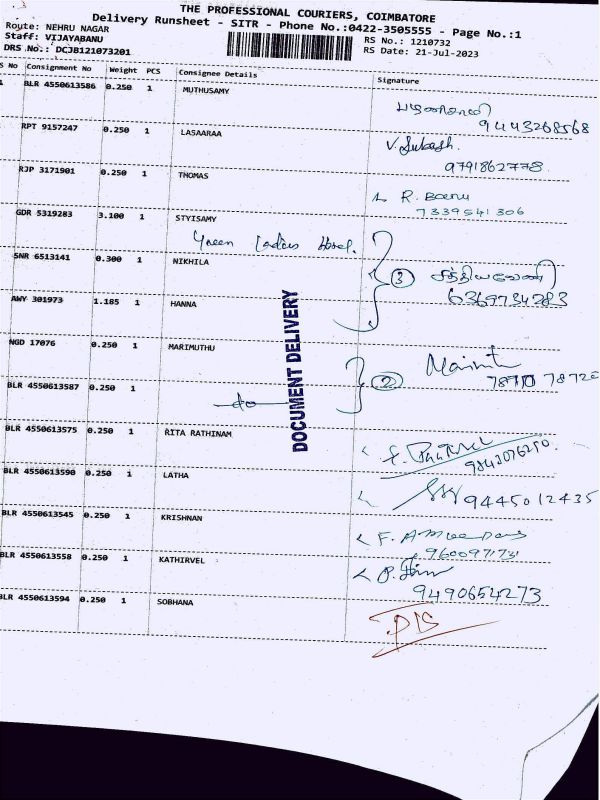 THE PROFESSIONAL COURIERS, COIMBATORE
Delivery Runsheet - SITR - Phone No.:0422-3505555 - Page No.:1
Route: NEHRU NAGAR
Staff: VIJAYABANU
DRS No.: DCJB121073201
RS No.: 1210732
RS Date: 21-Jul-2023
S No Consignment No Weight PCS Consignee Details Signature
1 BLR 4550613586 0.250 1 MUTHUSAMY
9443268568
RPT 9157247 0.250 1 LASAARAA V. Subash.
9791862778
RJP 3171901 0.250 1 THOMAS R. Banu
7339541306
GDR 5319283 3.100 1 STYISAMY
Ladies Hostel.
SNR 6513141 0.300 1 NIKHILA 3 சத்தியவேணி
6369734283
AWY 301973 1.185 1 HANNA
DOCUMENT DELIVERY
NGD 17076 0.250 1 MARIMUTHU
BLR 4550613587 0.250 1 -do- 2
BLR 4550613575 0.250 1 RITA RATHINAM
9843076250
BLR 4550613590 0.250 1 LATHA 9445012435
BLR 4550613545 0.250 1 KRISHNAN
960097173
BLR 4550613558 0.250 1 KATHIRVEL
9490654273
BLR 4550613594 0.250 1 SOBHANA
D/S